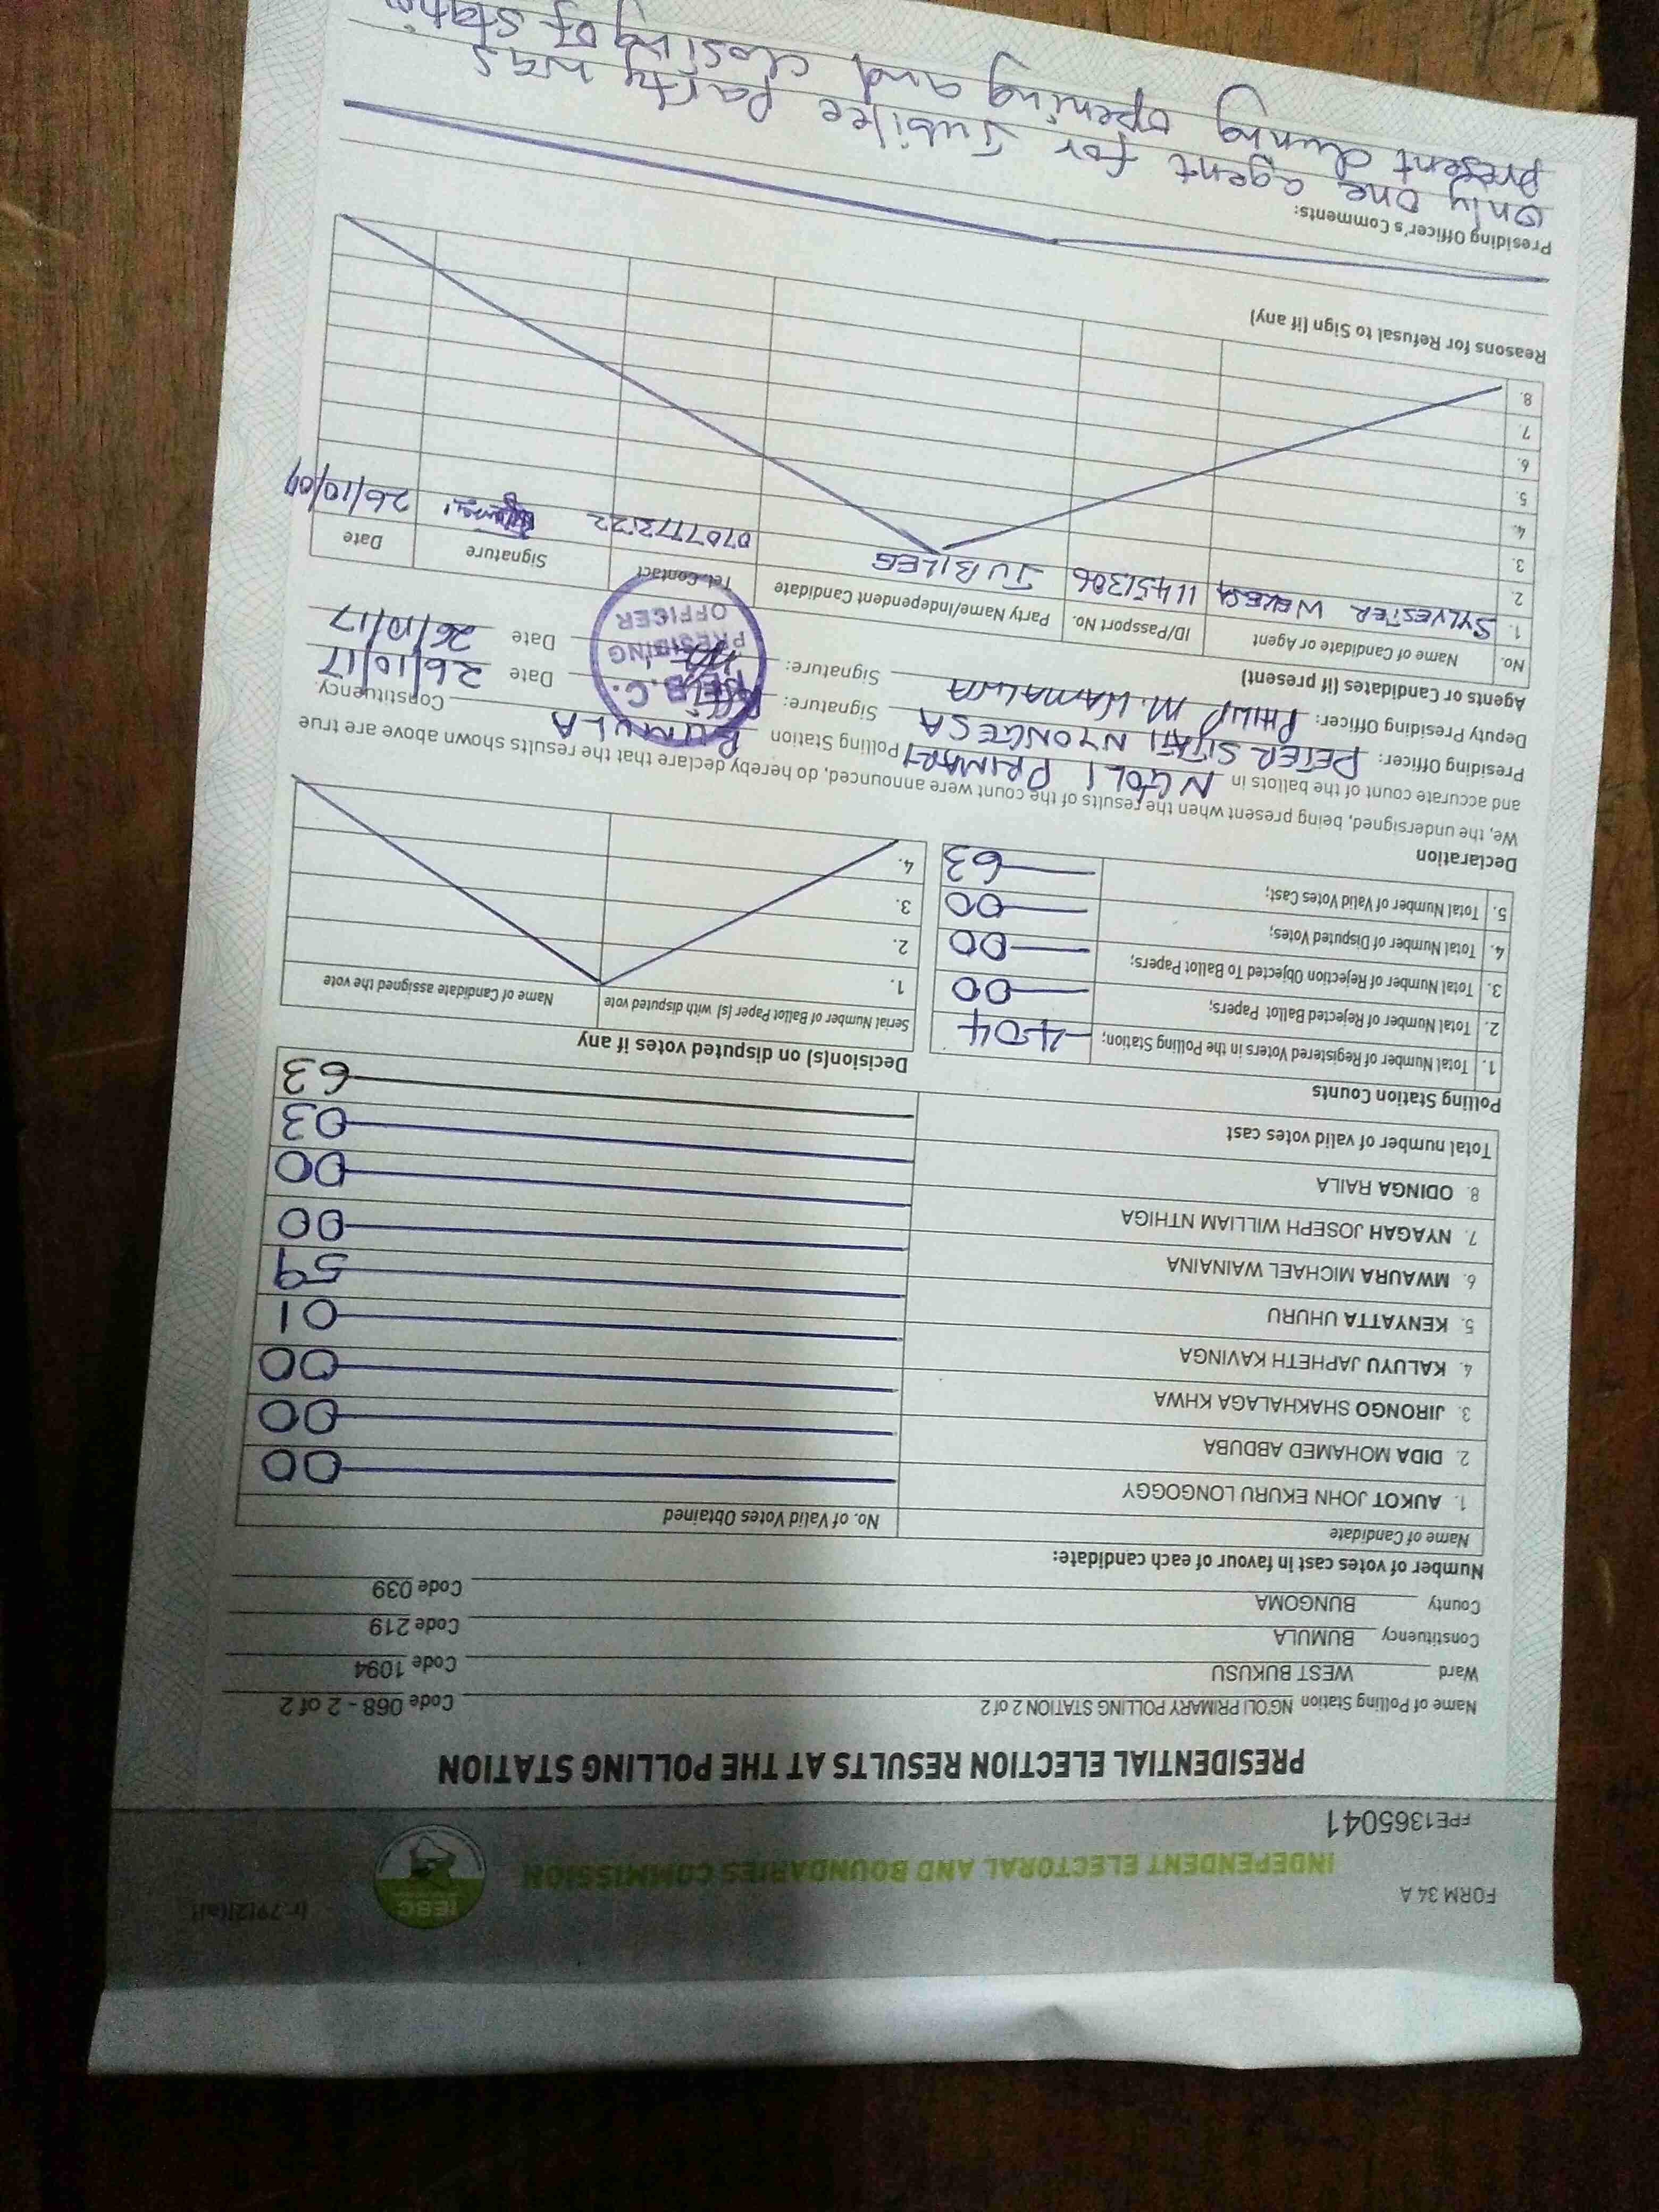 FORM 34 A
(r.79(2)(a))
INDEPENDENT ELECTORAL AND BOUNDARIES COMMISSION
IEBC
FPE1365041
PRESIDENTIAL ELECTION RESULTS AT THE POLLING STATION
Name of Polling Station NG'OLI PRIMARY POLLING STATION 2 of 2 Code 068 - 2 of 2
Ward WEST BUKUSU Code 1094
Constituency BUMULA Code 219
County BUNGOMA Code 039
Number of votes cast in favour of each candidate:
Name of Candidate No. of Valid Votes Obtained
1. AUKOT JOHN EKURU LONGOGGY 00
2. DIDA MOHAMED ABDUBA 00
3. JIRONGO SHAKHALAGA KHWA 00
4. KALUYU JAPHETH KAVINGA 01
5. KENYATTA UHURU 59
6. MWAURA MICHAEL WAINAINA 00
7. NYAGAH JOSEPH WILLIAM NTHIGA 00
8. ODINGA RAILA 03
Total number of valid votes cast 63
Polling Station Counts
1. Total Number of Registered Voters in the Polling Station; 404
2. Total Number of Rejected Ballot Papers; 00
3. Total Number of Rejection Objected To Ballot Papers; 00
4. Total Number of Disputed Votes; 00
5. Total Number of Valid Votes Cast; 63
Decision(s) on disputed votes if any
Serial Number of Ballot Paper (s) with disputed vote Name of Candidate assigned the vote
1.
2.
3.
4.
Declaration
We, the undersigned, being present when the results of the count were announced, do hereby declare that the results shown above are true
and accurate count of the ballots in NGOLI PRIMARY Polling Station BUMULA Constituency.
Presiding Officer: PETER SITATI NYONGESA Signature: Date 26/10/17
Deputy Presiding Officer: PHILIP M. WAMALWA Signature: Date 26/10/17
I.E.B.C.
PRESIDING
OFFICER
Agents or Candidates (if present)
No. Name of Candidate or Agent ID/Passport No. Party Name/Independent Candidate Tel. Contact Signature Date
1. SYLVESTER WEKESA 11451306 JUBILEE 0707773722 26/10/07
2.
3.
4.
5.
6.
7.
8.
Reasons for Refusal to Sign (if any)
Presiding Officer's Comments:
Only one agent for Jubilee party was
present during opening and closing of